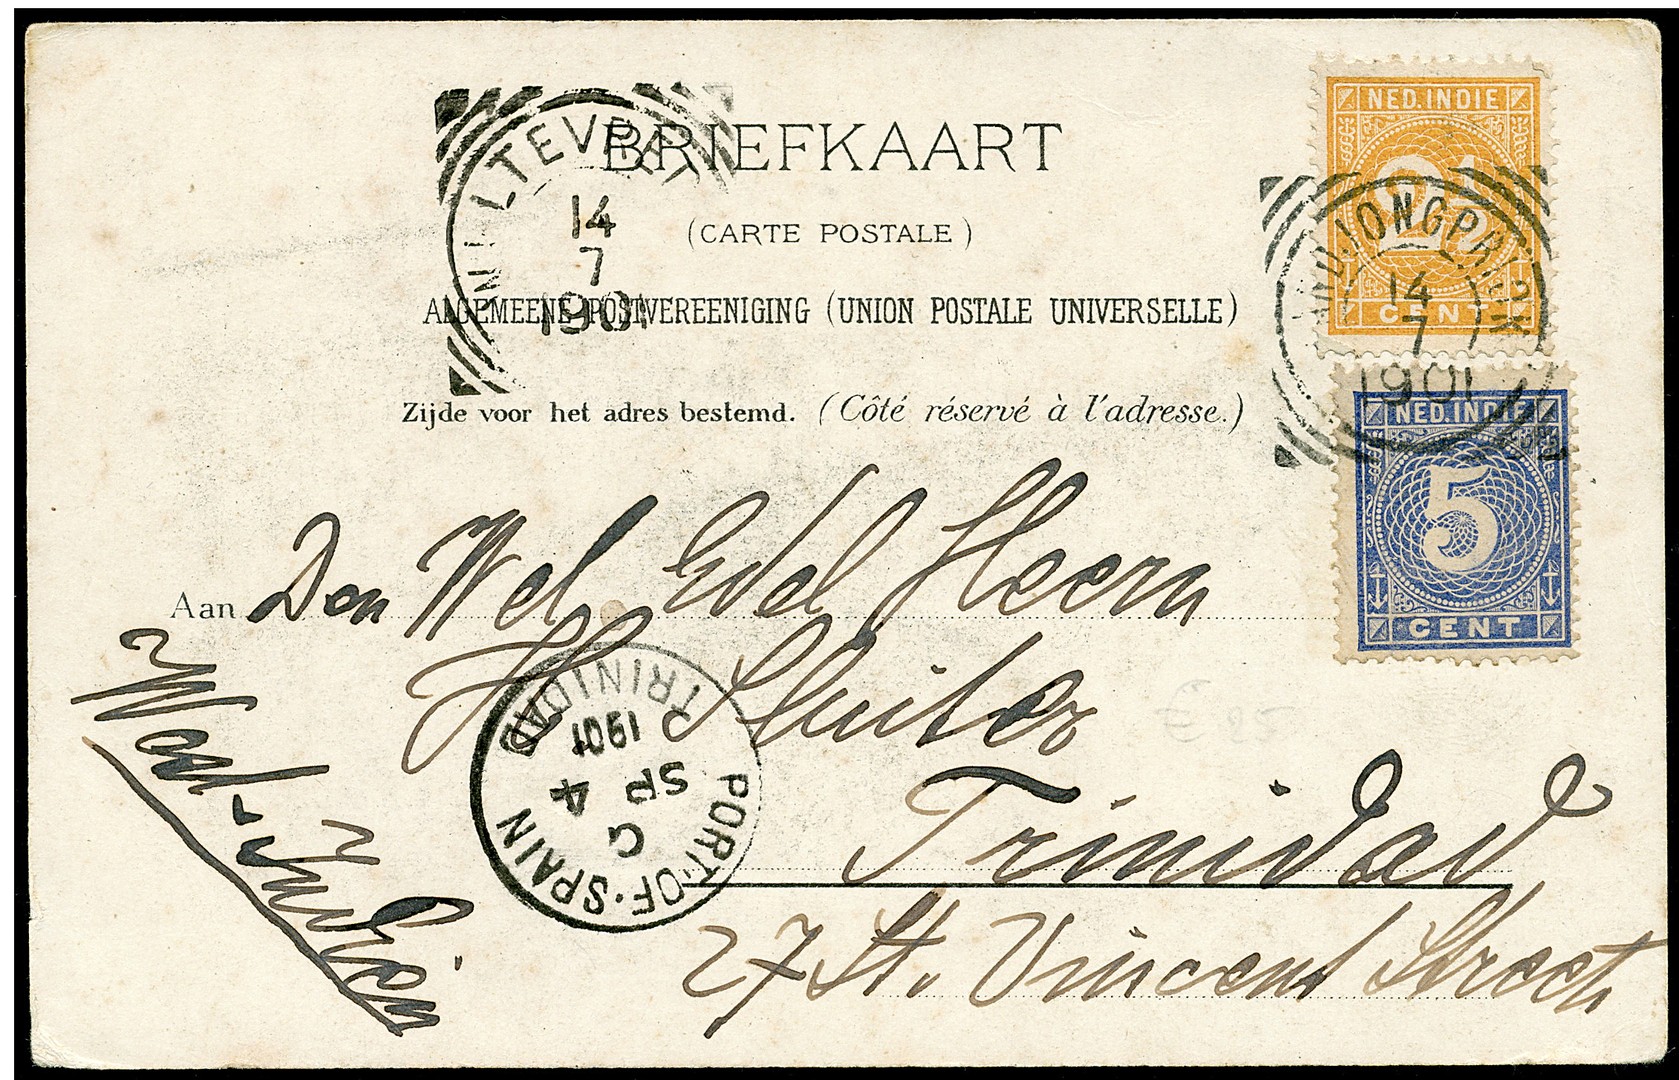 BRIEFKAART
(CARTE POSTALE)
ALGEMEENE POSTVEREENIGING (UNION POSTALE UNIVERSELLE)
Zijde voor het adres bestemd. (Côté réservé à l'adresse.)
LTEVR
14
7
1901
NED. INDIE
2½
CENT
NDJONGPRIOK
14
7
1901
NED. INDIE
5
CENT
Aan Den Wel Edel Heern
H Sluiter
Trinidad
27 St. Vincent Street
West-Indien
PORT-OF-SPAIN
C
SP 4
1901
TRINIDAD